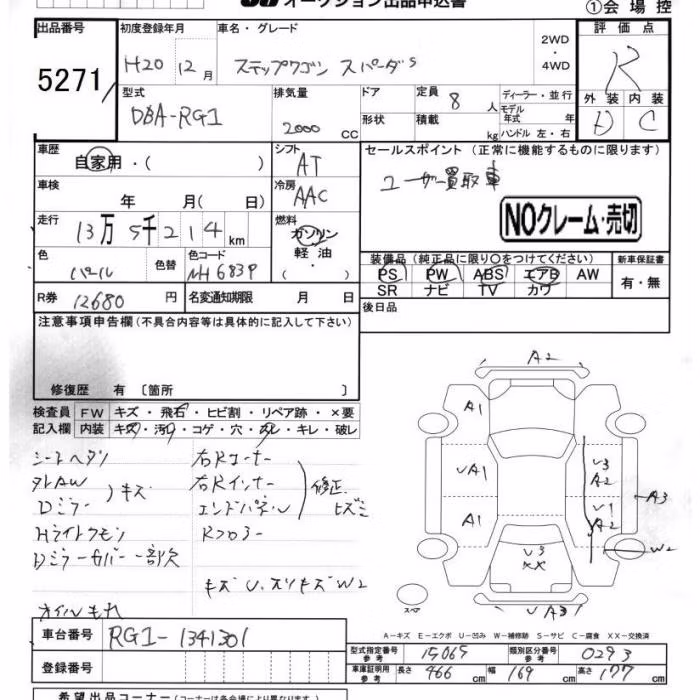 オークション出品申込書
①会場控
出品番号
5271
初度登録年月 車名・グレード
H20 12月 ステップワゴン スパーダS
2WD・4WD
評価点
R
外装 内装
D C
型式 排気量 ドア 定員 8人 ディーラー・並行
DBA-RG1 2000 CC
形状 積載 kg モデル年式 年
ハンドル 左・右
車歴
自家用・( )
シフト
AT
セールスポイント(正常に機能するものに限ります)
ユーザー買取車
NOクレーム・売切
車検 年 月( 日)
冷房
AAC
走行 13万5千214km
燃料
ガソリン
軽油
・( )
色 パール 色替 色コード NH683P
装備品(純正品に限り○をつけてください) 新車保証書
PS PW ABS エアB AW
SR ナビ TV カワ
有・無
R券 12680円 名変通知期限 月 日
後日品
注意事項申告欄(不具合内容等は具体的に記入して下さい)
修復歴 有 〔箇所 〕
検査員 FW キズ・飛石・ヒビ割・リペア跡・×要
記入欄 内装 キズ・汚れ・コゲ・穴・スレ・キレ・破レ
シートヘタリ
タトAW
Dミラー
キズ
Hライトクモリ
Dミラーカバー一部欠
オイルもれ
右Rコーナー
右Rインナー
エンドパネル
修正 ヒズミ
Rフロアー
キズ U、スリキズ W2
A2
A1
UA1
A1
U3
A2
U1
A2
A3
W2
U3
XX
UA3
スペア
A-キズ E-エクボ U-凹み W-補修跡 S-サビ C-腐食 XX-交換済
車台番号 RG1-1341301
登録番号
型式指定番号 参考 15065 類別区分番号 参考 0293
車庫証明用 参考 長さ 466cm 幅 169cm 高さ 177cm
希望出品コーナー(コーナーは各会場により異なります)